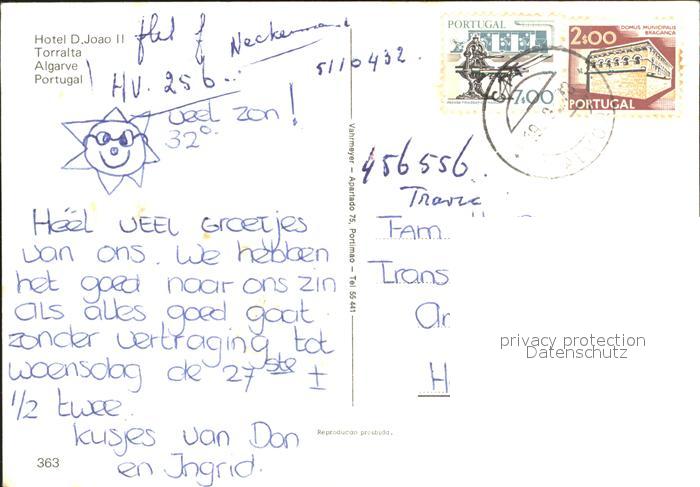 Hotel D. Joao II
Torralta
Algarve
Portugal
Neckermann
H/V. 256
5110432.
veel zon!
32°.
Héél veel groetjes
van ons. We hebben
het goed naar ons zin
als alles goed gaat
zonder vertraging tot
woensdag de 27ste ±
1/2 twee.
kusjes van Dan
en Ingrid.
363
Vahrmeyer - Apartado 75, Portimao - Tel 55 441
Reproducao proibida.
PORTUGAL
7,00
DOMUS MUNICIPALIS
BRAGANÇA
2$00
PORTUGAL
456556.
Fam
Trans
H
privacy protection
Datenschutz